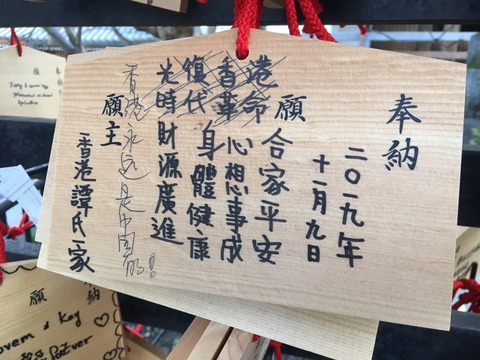 奉納
二〇一九年
十一月九日
願
光復香港
時代革命
合家平安
心想事成
身體健康
財源廣進
香港永遠是中国的!
願主
香港譚氏一家
納
願
& Kay